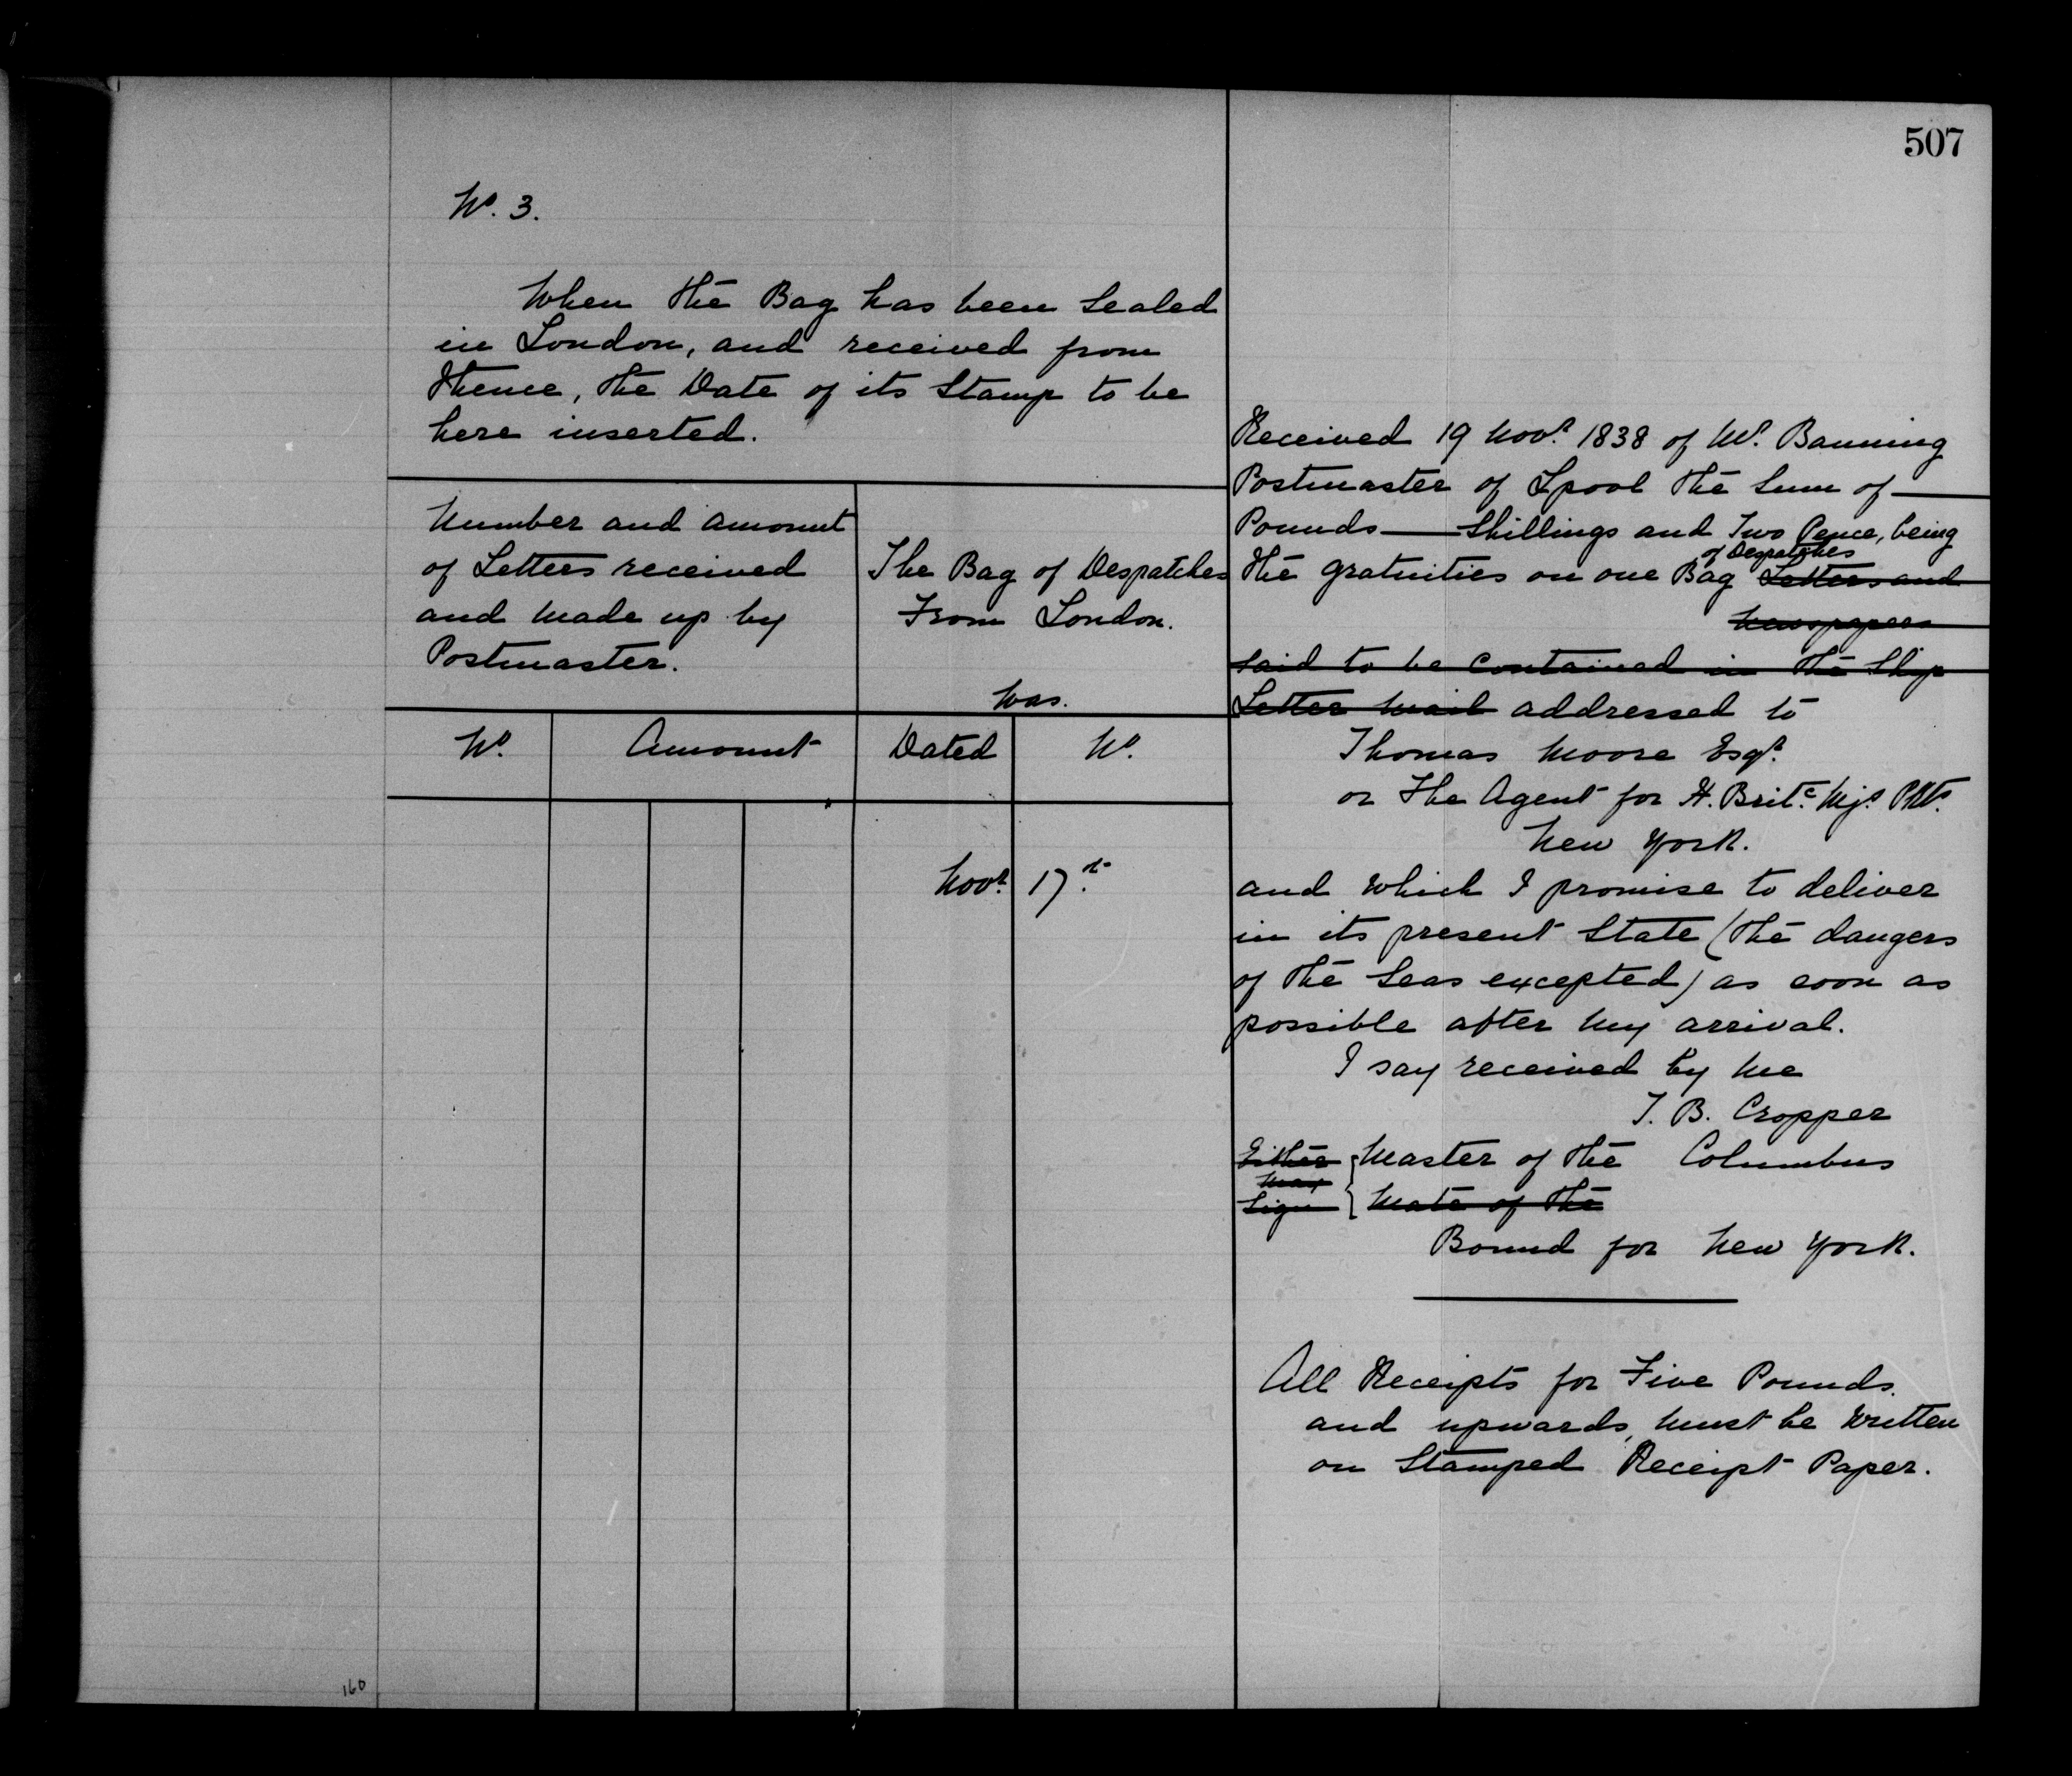 507
No. 3.
When the Bag has been sealed
in London, and received from
thence, the Date of its Stamp to be
here inserted.
Number and amount
of Letters received
and made up by
Postmaster.
The Bag of Despatches
From London.
was.
No.
Amount
Dated
No.
Novr. 17th.
Received 19 Novr. 1838 of Mr. Banning
Postmaster of Lpool the sum of —
Pounds — Shillings and Two Pence, being
of Despatches
the gratuities on one Bag Letters and
Newspapers
said to be contained in the Ship
Letter Mail addressed to
Thomas Moore Esqr.
or The Agent for H. Britc. Mjs. Pkts.
New York.
and which I promise to deliver
in its present State (the dangers
of the seas excepted) as soon as
possible after my arrival.
I say received by me
T. B. Cropper
Either Master of the Columbus
may
sign Mate of the
Bound for New York.
All Receipts for Five Pounds
and upwards, must be written
on Stamped Receipt Paper.
160